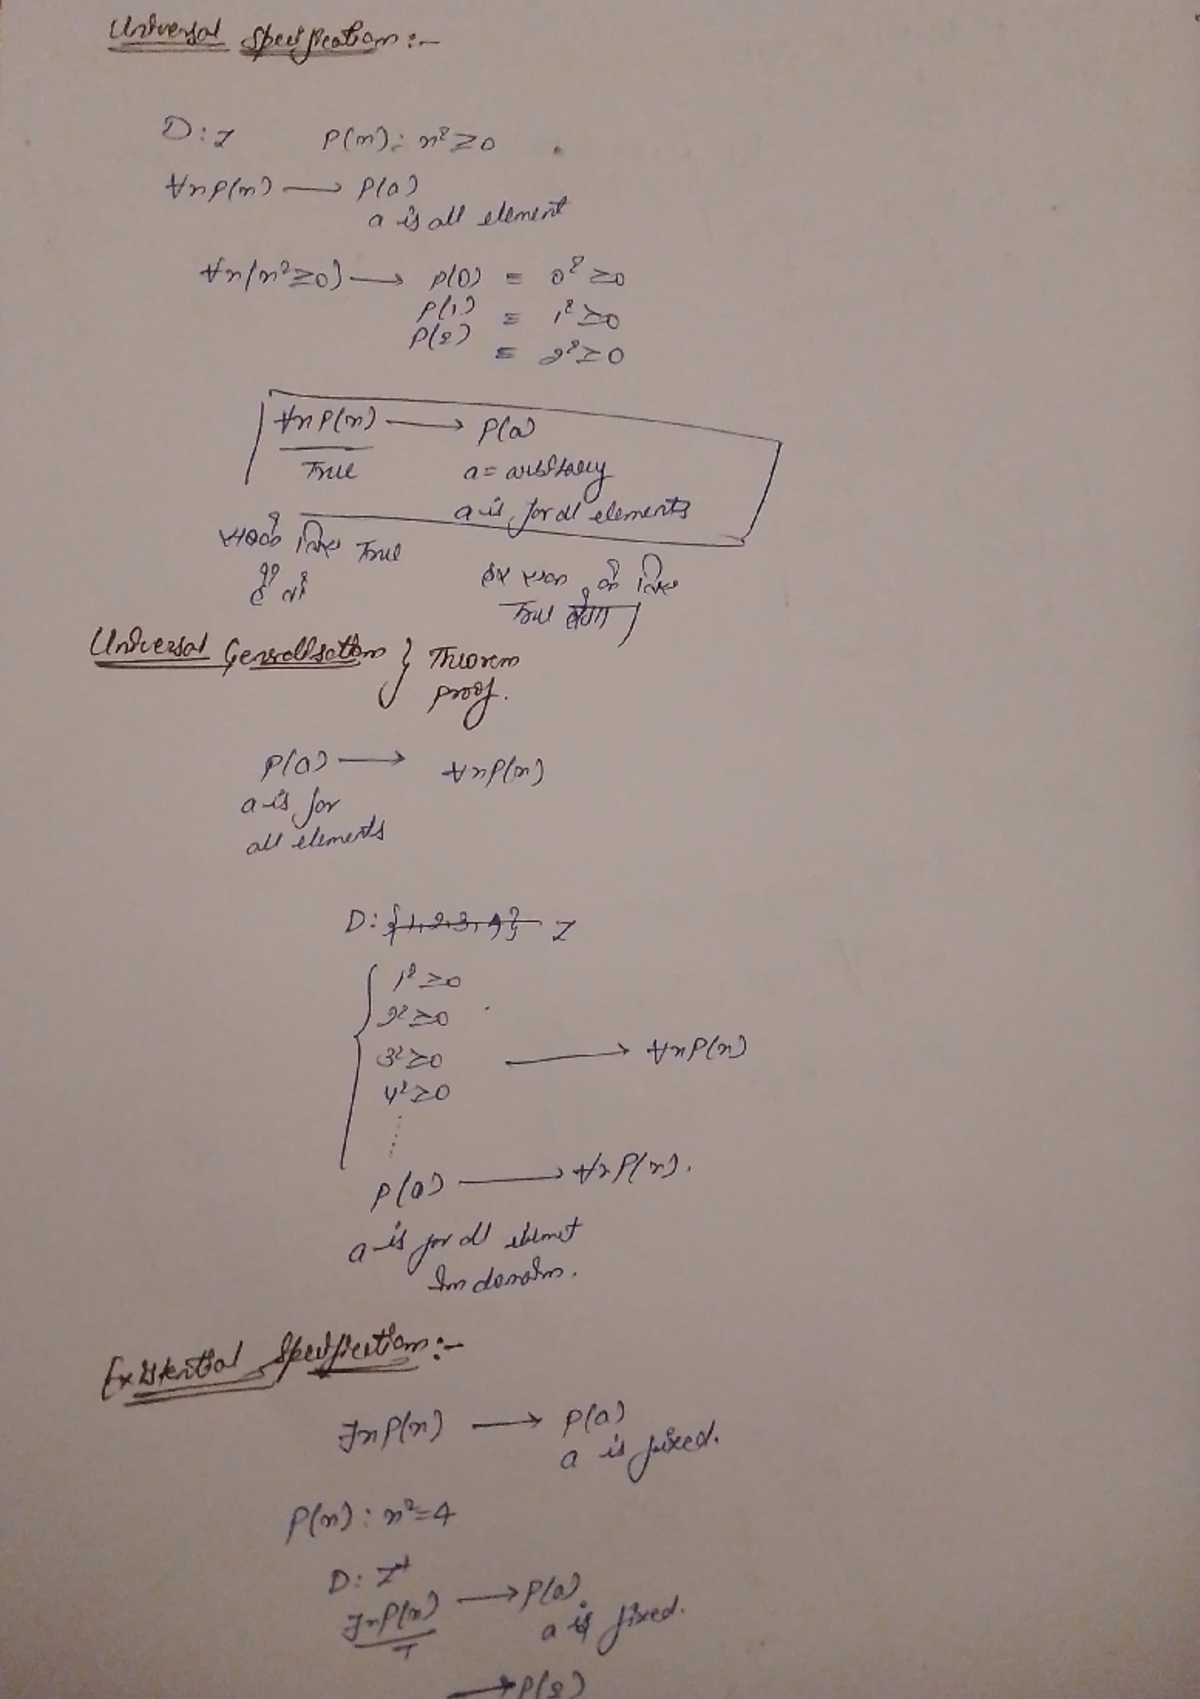 Universal Specification:-
D: Z P(x): x² ≥ 0
∀x P(x) → P(a)
a is all element
∀x(x² ≥ 0) → P(0) = 0² ≥ 0
P(1) = 1² ≥ 0
P(2) = 2² ≥ 0
∀x P(x) → P(a)
True a = arbitrary
a is for all elements
सबके लिए True
है तो हर एक के लिए
True होगा
Universal Generalisation } Theorem
proof.
P(a) → ∀x P(x)
a is for
all elements
D: {1,2,3,4} Z
1² ≥ 0
2² ≥ 0
3² ≥ 0 → ∀x P(x)
4² ≥ 0
P(a) → ∀x P(x).
a is for all elemet
in domain.
Existential Specification:-
∃x P(x) → P(a)
a is fixed.
P(x): x² = 4
D: Z⁺
∃x P(x) → P(a)
T a is fixed.
→ P(2)